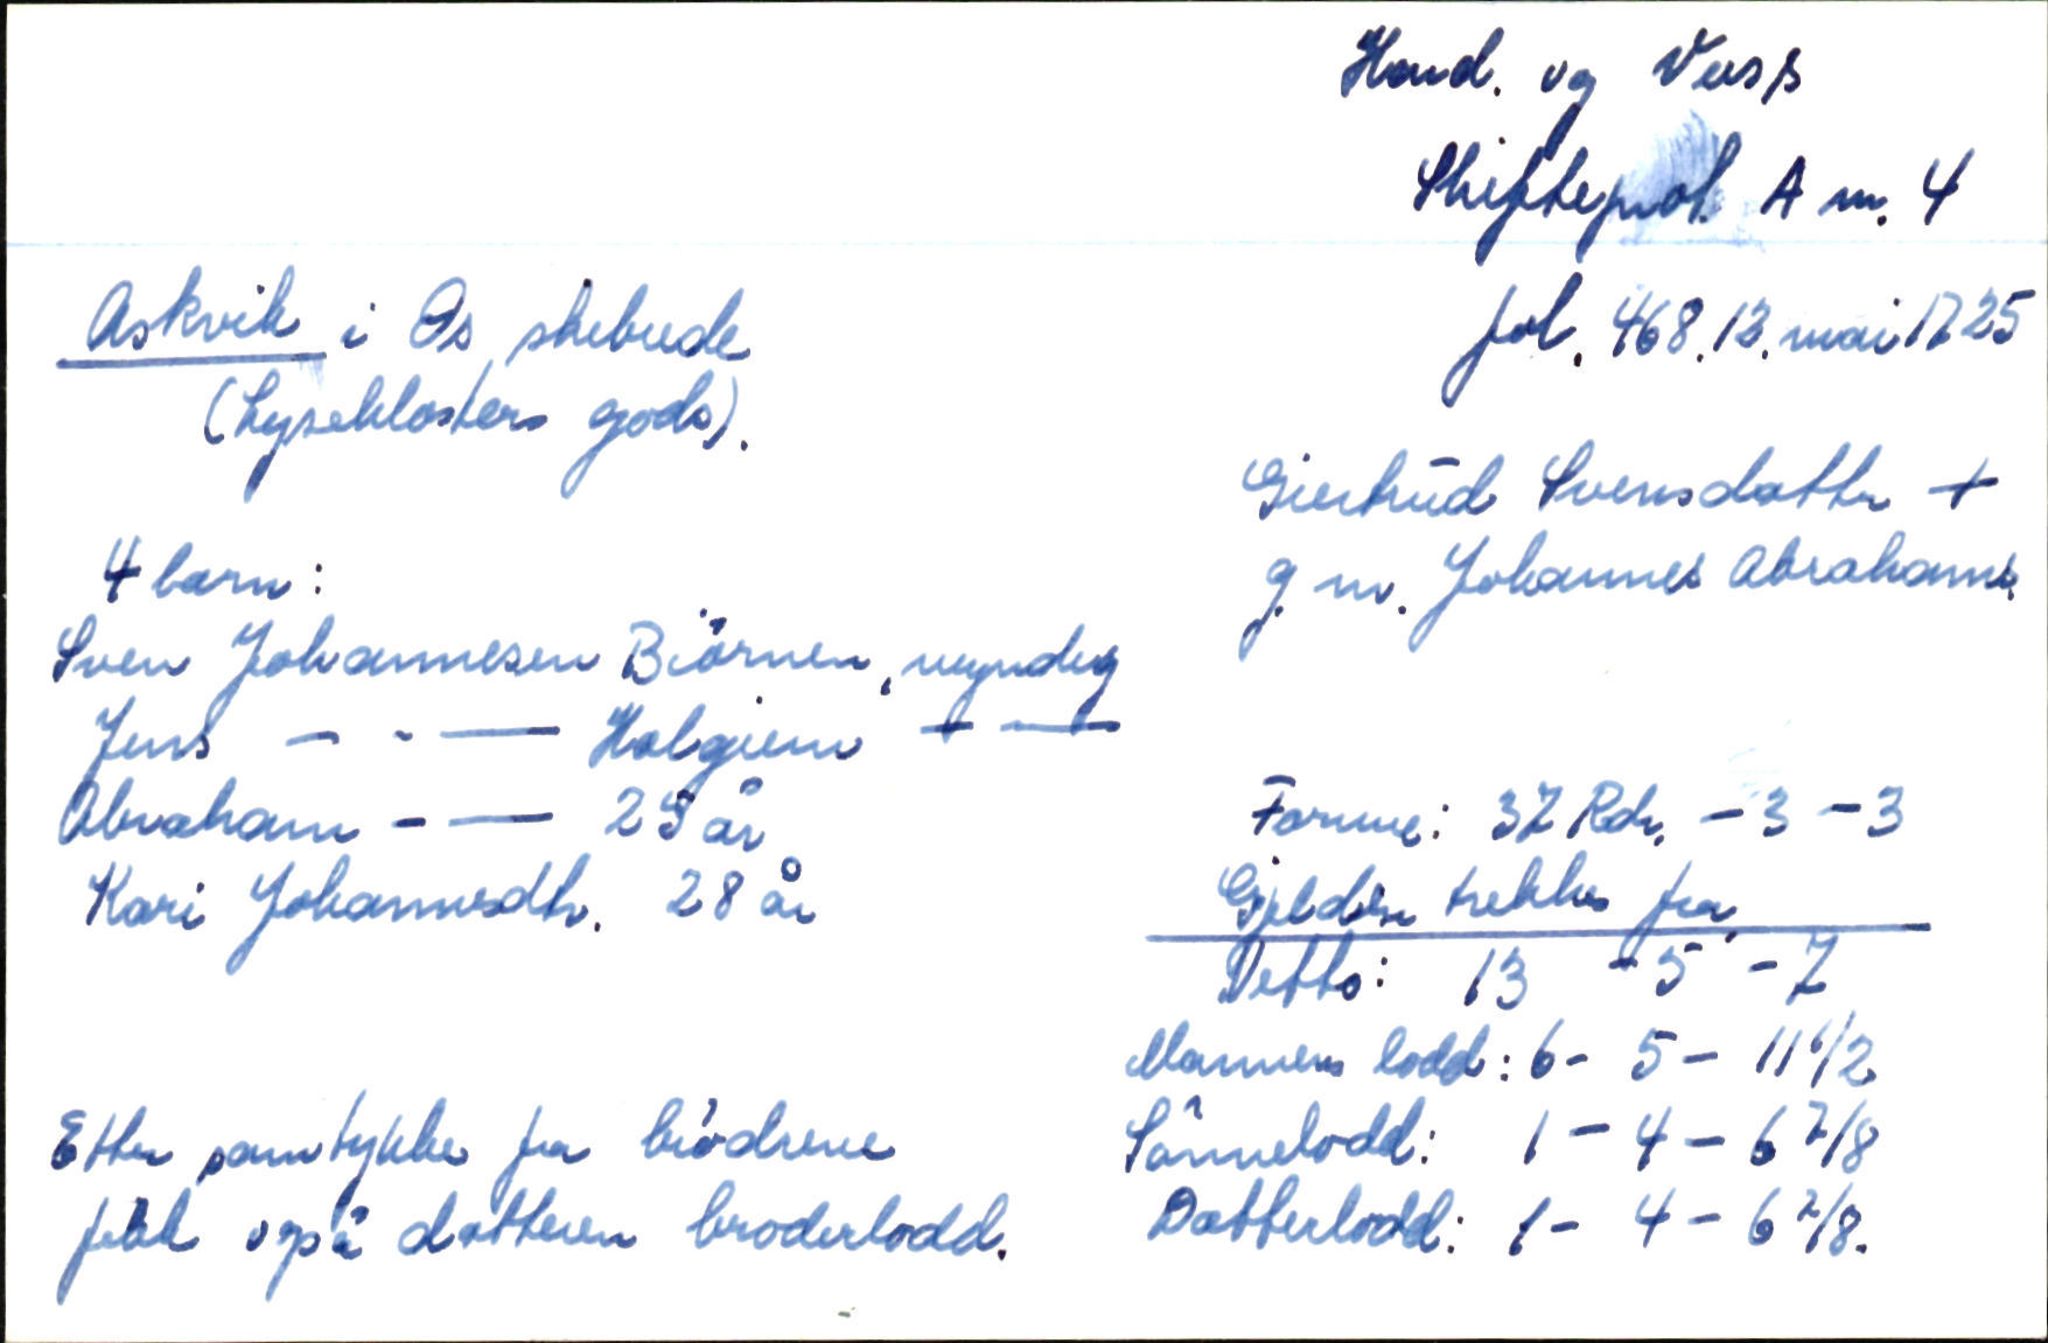 Hard. og Voss
Skifteprot. A nr. 4
fol. 468. 12. mai 1725
Askvik i Os skibrede
(Lyseklosters gods).
Giertrud Svensdatter +
g. m. Johannes Abrahams.
4 barn:
Sven Johannesen Biörnen, myndig
Jens - - — Halgiem + —
Abraham - — 25 år
Kari Johannesdtr. 28 år
Formue: 37 Rdr. - 3 - 3
Gjelden trekkes fra
Netto: 13 - 5 - 7
Mannens lodd: 6 - 5 - 11 1/2
Sönnelodd: 1 - 4 - 6 7/8
Datterlodd: 1 - 4 - 6 7/8.
Etter samtykke fra brödrene
fekk også datteren broderlodd.